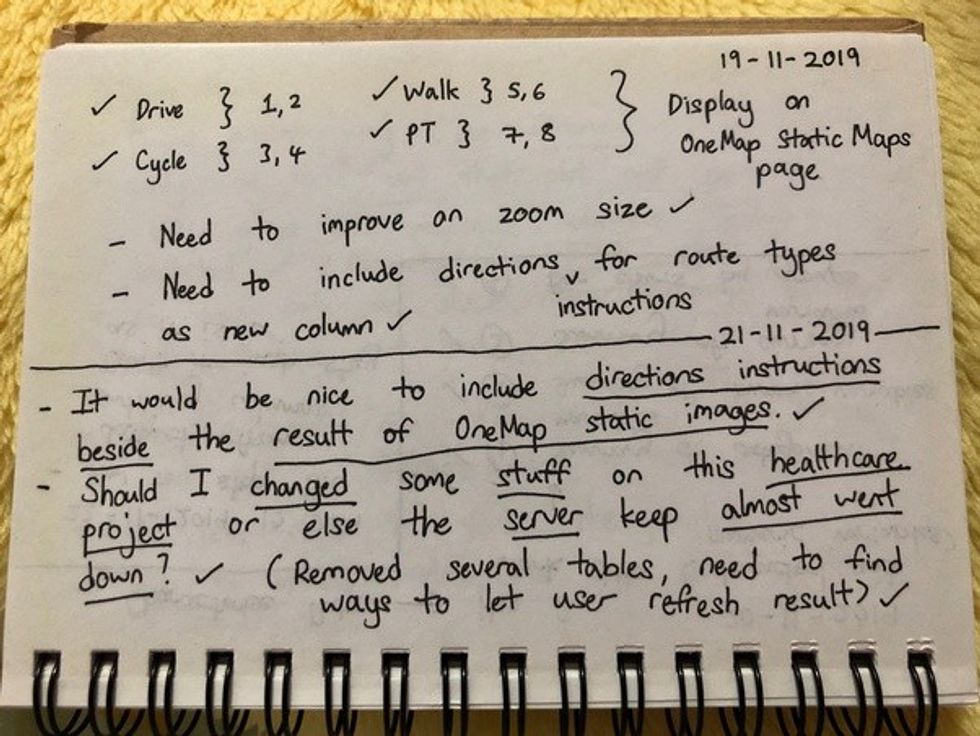 19-11-2019
✓ Drive } 1,2 ✓ Walk } 5,6 } Display on
✓ Cycle } 3,4 ✓ PT } 7,8 OneMap Static Maps
page
- Need to improve on zoom size ✓
- Need to include directions ˅ for route types
instructions
as new column ✓
21-11-2019
- It would be nice to include directions instructions
beside the result of OneMap static images. ✓
- Should I changed some stuff on this healthcare
project or else the server keep almost went
down? ✓ (Removed several tables, need to find
ways to let user refresh result) ✓